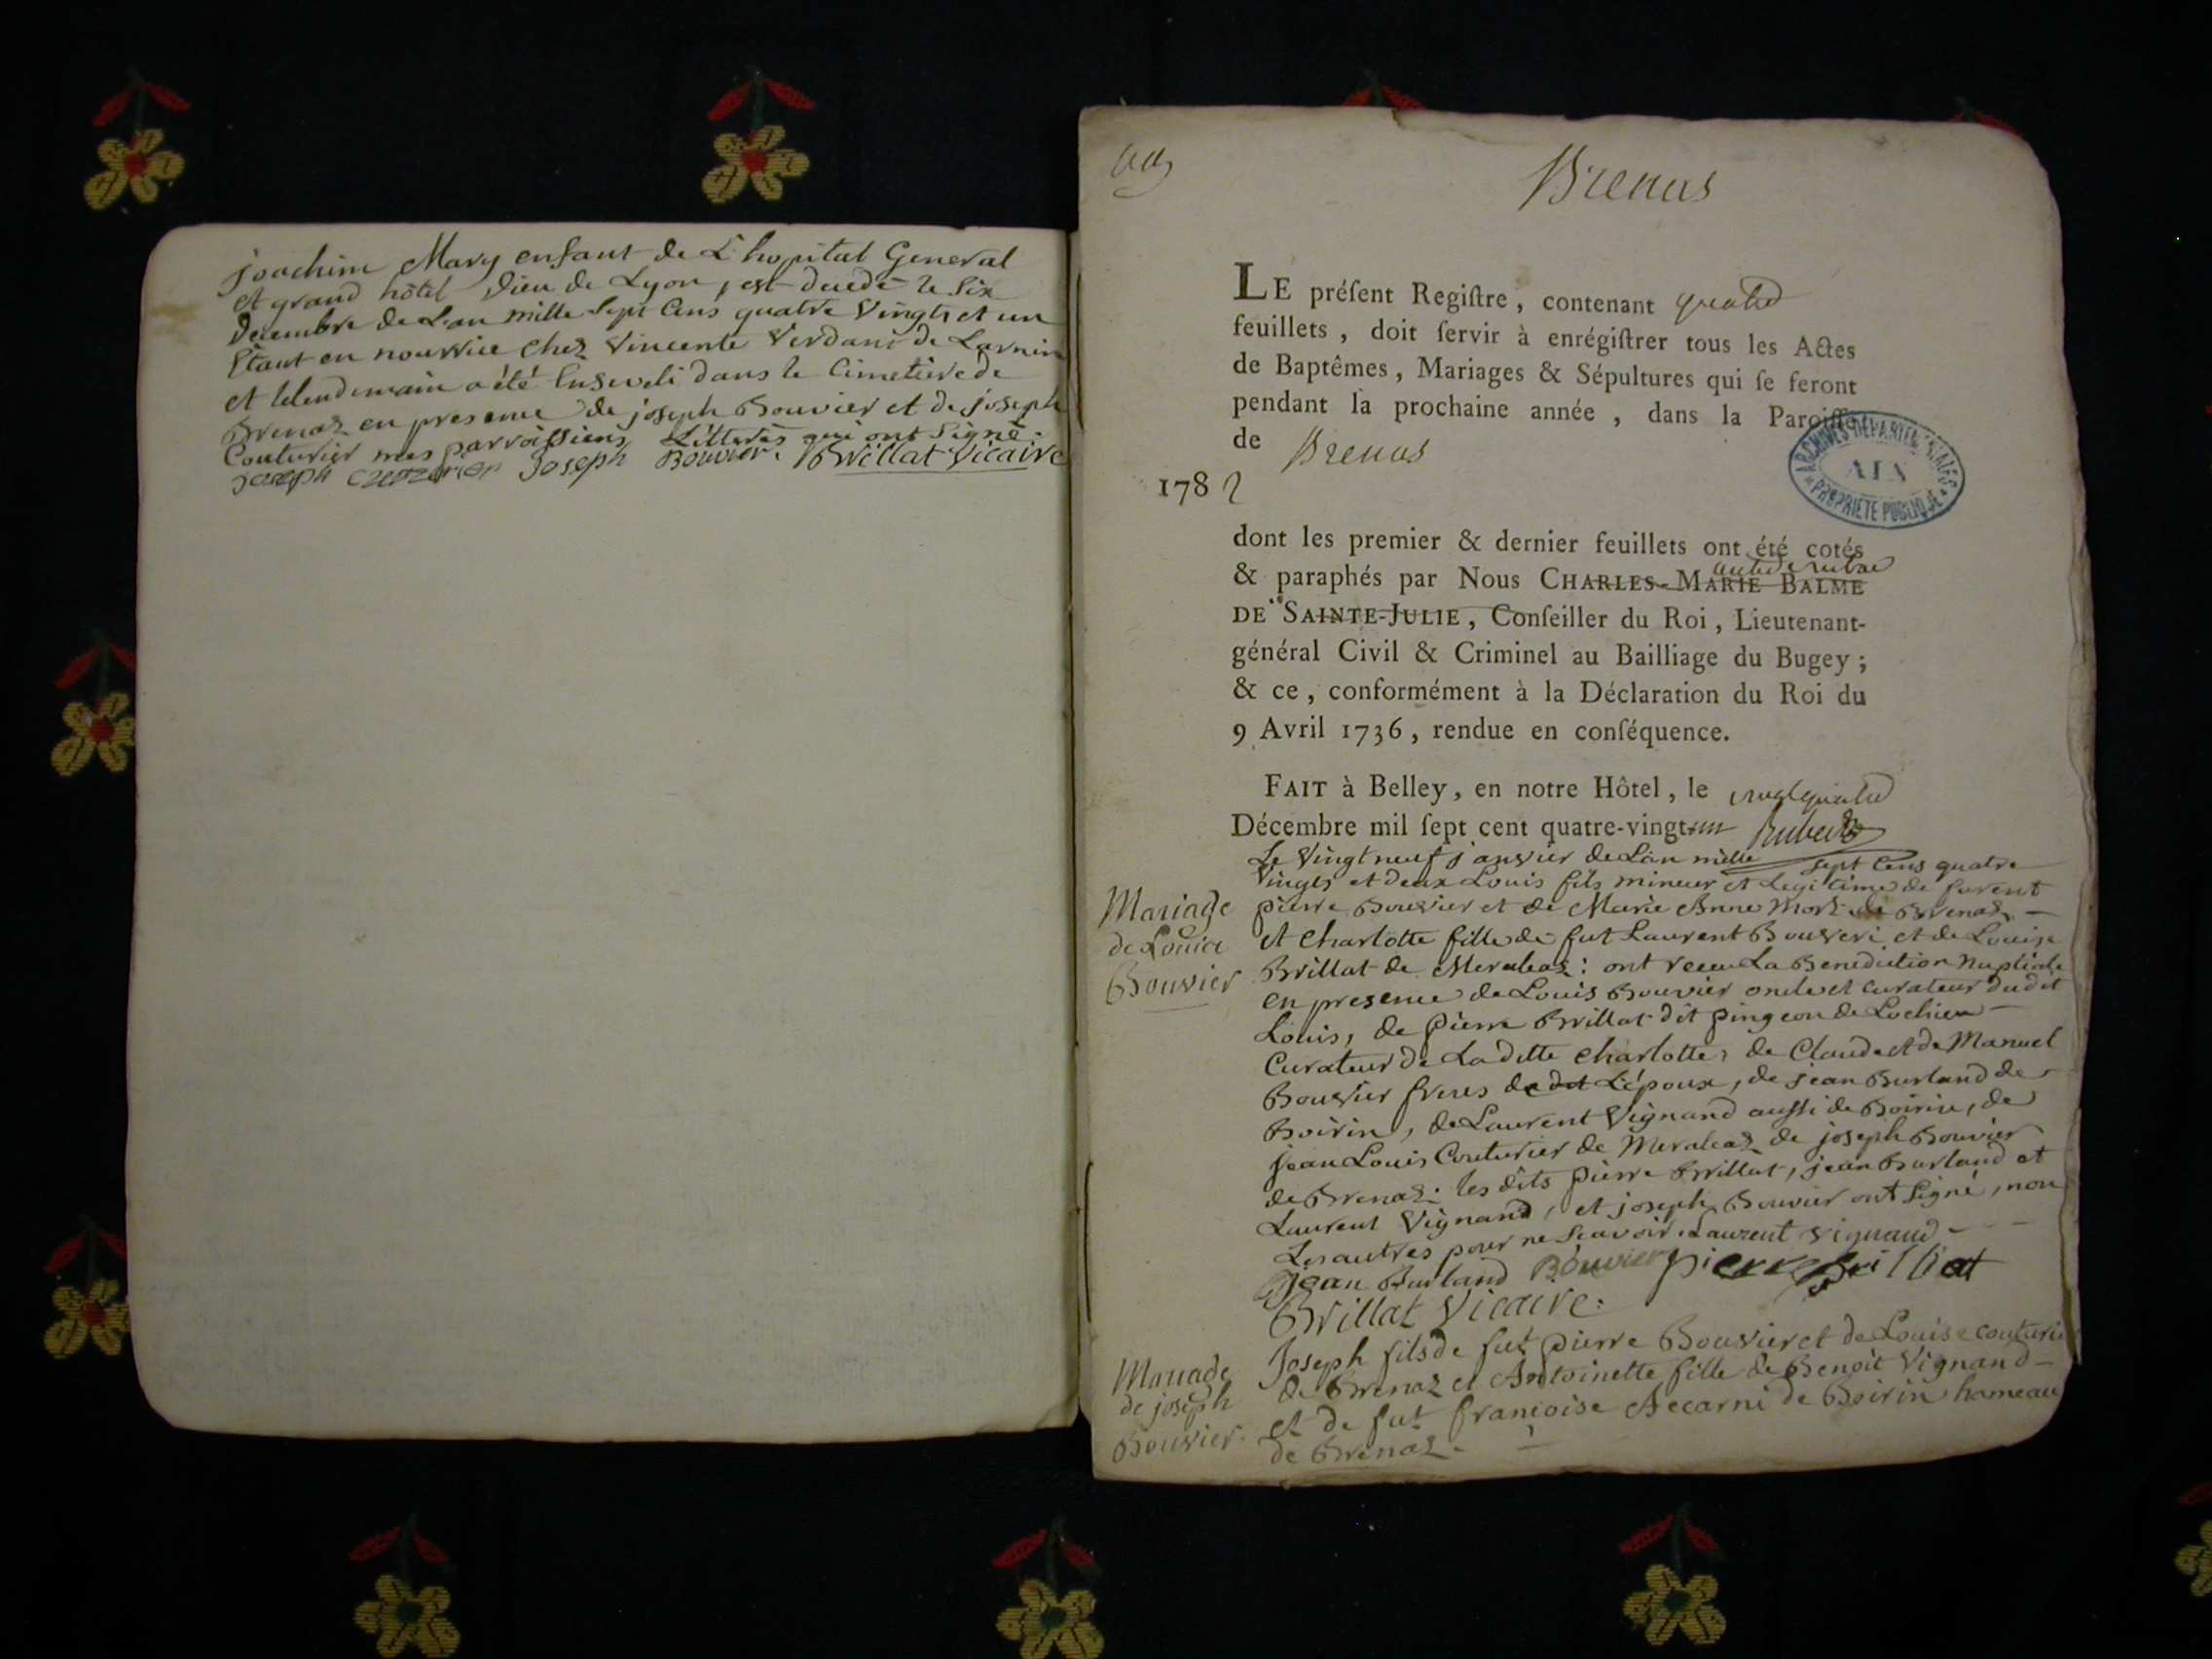 joachim Mary enfant de L'hopital General
et grand hôtel Dieu de Lyon, est decedé le Six
Decembre de L'an mille Sept Cens quatre Vingts et un
Etant en nourrice chez Vincente Verdani de
et lelendemain a été Enseveli dans le Cimetiere de
Brenaz en presence de joseph Bouvier et de joseph
Couturier mes parroissiens Litterés qui ont Signé.
joseph Joseph Bouvier. Brillat Vicaire
Brenas
LE préſent Regiſtre, contenant quatre
feuillets, doit ſervir à enrégiſtrer tous les Actes
de Baptêmes, Mariages & Sépultures qui ſe feront
pendant la prochaine année, dans la Paroiſſe
de Brenas
1782
ARCHIVES DÉPARTEMENTALES
AIN
PROPRIÉTÉ PUBLIQUE
dont les premier & dernier feuillets ont été cotés
& paraphés par Nous CHARLES-MARIE BALME
DE SAINTE-JULIE, Conſeiller du Roi, Lieutenant-
général Civil & Criminel au Bailliage du Bugey;
& ce, conformément à la Déclaration du Roi du
9 Avril 1736, rendue en conſéquence.
FAIT à Belley, en notre Hôtel, le vingt quatre
Décembre mil ſept cent quatre-vingt-un
Le Vingt neuf janvier de L'an mille sept Cens quatre
Vingts et deux Louis fils mineur et Legitime de furent
pierre Bouvier et de Marie Anne de Brenaz
et Charlotte fille de fut Laurent Bouveri et de Louise
Brillat de Meraleaz: ont receu La Benediction Nuptiale
en presence de Louis Bouvier oncle et curateur dudit
Louis, de pierre Brillat dit pingeon de Lochieu
Curateur de La ditte charlotte, de Claude et de Manuel
Bouvier freres de L'époux, de jean Burland de
Boirin, de Laurent Vignand aussi de Boirin, de
jean Louis Couturier de Meraleaz de joseph Bouvier
de Brenaz: les dits pierre Brillat, jean Burland et
Laurent Vignand, et joseph Bouvier ont signé, non
Les autres pour ne Scavoir. Laurent vignand
Jean Burland Bouvier pierre Brillat
Brillat Vicaire.
Mariage
de Louis
Bouvier
Joseph fils de fut pierre Bouvier et de Louise couturie
de Brenaz et Antoinette fille de Benoit Vignand
et de fut francoise Accarni de Boirin hameau
de Brenaz.
Mariage
de joseph
Bouvier.